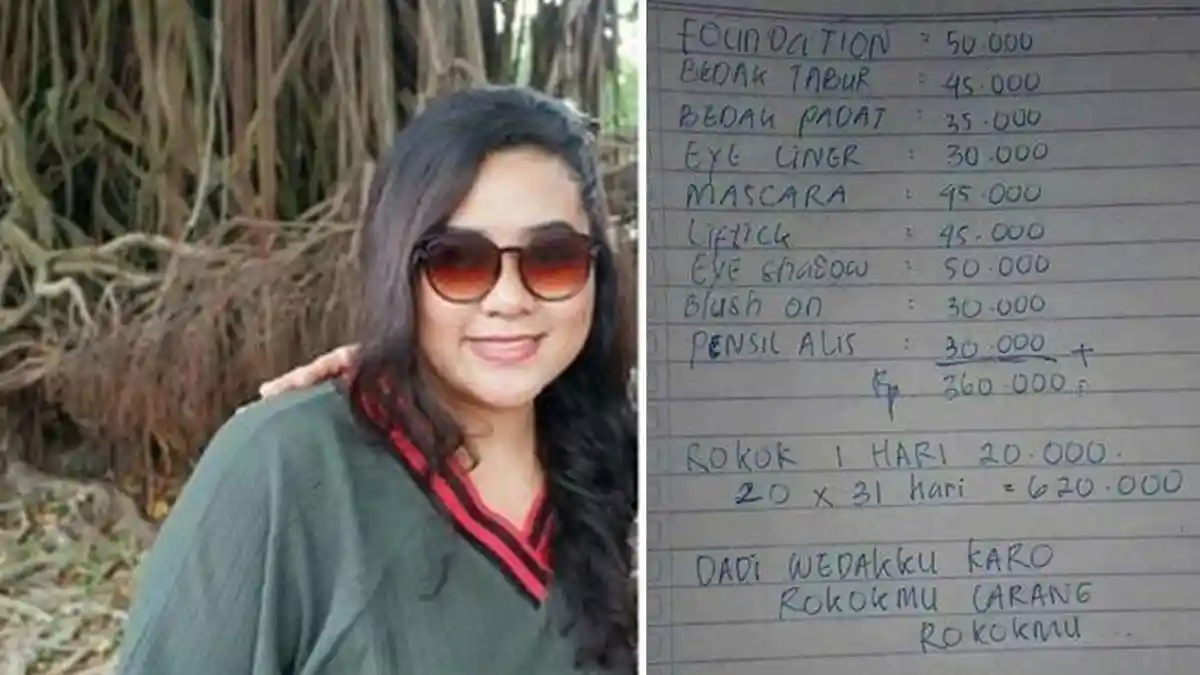 FOUNDATION : 50.000
BEDAK TABUR : 45.000
BEDAK PADAT : 35.000
EYE LINER : 30.000
MASCARA : 45.000
Liftick : 45.000
EYE Shadow : 50.000
Blush on : 30.000
PENSIL ALIS : 30.000 +
Rp 360.000
ROKOK 1 HARI 20.000.
20 x 31 hari = 620.000
DADI WEDAKKU KARO
ROKOKMU LARANG
ROKOKMU ...